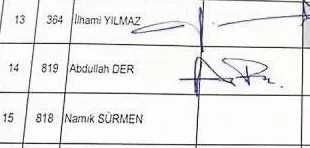 13 364 İlhami YILMAZ
14 819 Abdullah DER
15 818 Namık SÜRMEN